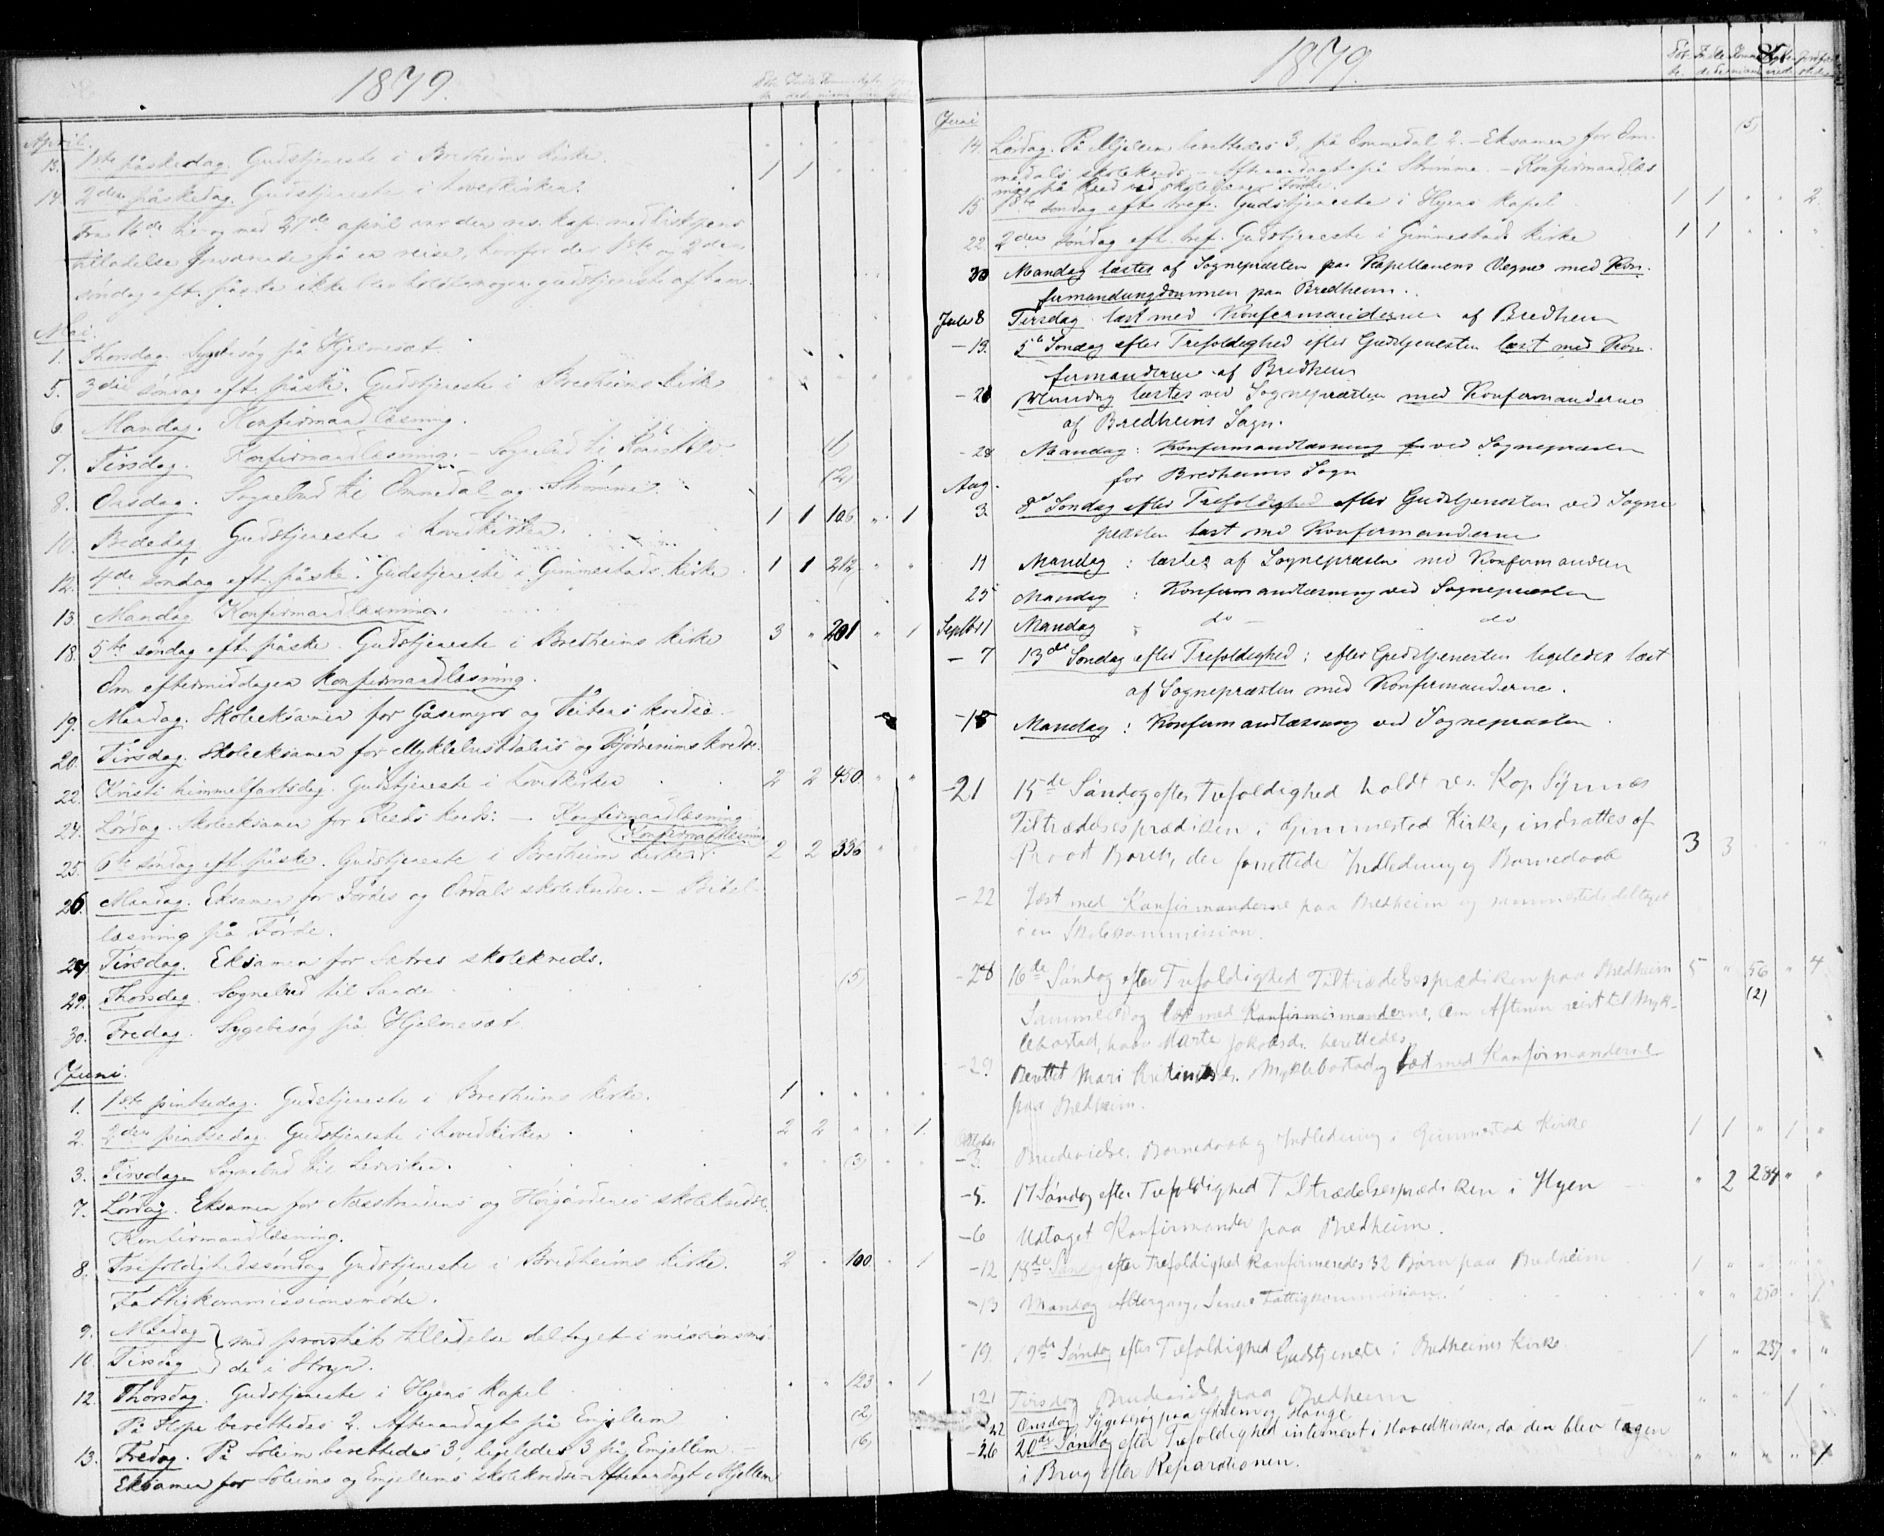 1879.
April.
13. 1ste påskedag. Gudstjeneste i Bredheims kirke. 1 1
14. 2den påskedag. Gudstjeneste i hovedkirken.
Fra 16de til og med 29de april var den res. kap. med bispens
tilladelse fraværende på en reise, hvorfor der 1ste og 2den
søndag eft. påske ikke blev holdt nogen gudstjeneste af ham.
Mai.
1. Thorsdag. Sygebesøg på Hjelmeset
5. 3die søndag eft. påske. Gudstjeneste i Bredheims kirke
6. Mandag. Konfirmandlæsning.
7. Tirsdag. Konfirmandlæsning. – Sognebud til (1)
8. Onsdag. Sognebud til Ommedal og Strømme. (2)
10. Bededag Gudstjeneste i hovedkirken. 1 1 106 " 1
12. 4de søndag eft. påske. Gudstjeneste i Gimmestads kirke. 1 1 212 " "
13. Mandag Konfirmandlæsning.
18. 5te søndag eft. påske. Gudstjeneste i Bredheims kirke 3 " 201 " 1
Om eftermiddagen konfirmandlæsning.
19. Mandag. Skoleeksamen for Gåsemyr og kredse.
20. Tirsdag. Skoleeksamen for Myklebustdalens og Bjørnereims kredse.
22. Kristi himmelfartsdag. Gudstjeneste i hovedkirken 2 2 450 " "
24. Lørdag. Skoleeksamen for Reeds kreds. – Konfirmandlæsning
25. 6te søndag eft. påske. Gudstjeneste i Bredheims kirke. Konfirmandlæsning 2 2 336
26. Mandag. Eksamen for Førdes og skolekredse. – Bibel-
læsning på Förde.
27. Tirsdag. Eksamen for Sætres skolekreds.
29. Thorsdag. Sognebud til Sande (5)
30. Fredag. Sygebesøg på Hjelmeset
Juni.
1. 1ste pintsedag. Gudstjeneste i Bredheims kirke. 1
2. 2den pintsedag. Gudstjeneste i hovedkirken 2 2 " " 1
3. Tirsdag Sognebud til (3)
7. Lørdag. Eksamen for og skolekredse.
Konfirmandlæsning.
8. Trefoldighedssøndag Gudstjeneste i Bredheims kirke. 2 " 100 " 1
Fattigkommissionsmøde.
9. Mandag } med provstiets tilladelse deltaget i missionsmø-
10. Tirsdag } de i Stryn.
12. Thorsdag. Gudstjeneste i Hyens kapel " " 123 " 1
På Hope berettedes 2. Aftenandagt på Emjellem (2)
13. Fredag. På Soleim berettedes 3, ligeledes 3 på Emjellem (6)
Eksamen for Soleims og Emjellems skolekredse. Aftenandagt i Mjellem
1879.
Juni
14. Lørdag. På Mjellem berettedes 3, på Ommedal 2. – Eksamen for Om- (5)
medals skolekreds. – Aftenandagt på Strømme. – Konfirmandlæs
ning på Reed ved skolelærer Førde.
15 1ste søndag eft. tref. Gudstjeneste i Hyens kapel 1 1 " " 2.
22 2den søndag eft. tref. Gudstjeneste i Gimmestads kirke 1 1 " " "
30 Mandag læstes af Sognepræsten paa Kapellanens Vegne med Kon-
firmandungdommen paa Bredheim.
Juli 8 Tirsdag læst med Konfermanderne af Bredheim
– 13. 5te Søndag efter Trefoldighed efter Gudstjenesten læst med Kon-
firmanderne af Bredheim
– 21 Mandag læstes ved Sognepræsten med Konfermanderne
af Bredheims Sogn.
– 28 Mandag: Konfermandlæsning ved Sognepræsten
for Bredheims Sogn
Aug.
3 8de Søndag efter Trefoldighed efter Gudstjenesten ved Sogne
præsten læst med Konfermanderne
11 Mandag: læstes af Sognepræsten med Konfermanden
25 Mandag: Konfermandlæsning ved Sognepræsten
Septbr 1 Mandag " do – do
– 7 13de Søndag efter Trefoldighed: efter Gudstjenesten ligeledes læst
af Sognepræsten med Konfermanderne.
– 15 Mandag: Konfermandlæsning ved Sognepræsten.
– 21 15de Søndag efter Trefoldighed holdt res. Kap
Tiltrædelsesprædiken i Gimmestad Kirke, indsattes af
Provst der forrettede Indledning og Barnedaab 3 3 " " "
– 22 Læst med Konfirmanderne paa Bredheim og sammesteds deltaget
i en Skolecommission.
– 28 16de Søndag efter Trefoldighed Tiltrædelsesprædiken paa Bredheim 5 " 56 " 4
Sammedag læst med Konfirmirmanderne, Om Aftenen reist til Myk- (2)
lebostad, hvor Marte Jakobsd. berettedes.
– 29 Berettet Mari Myklebostad og læst med Konfirmanderne
paa Bredheim.
Oktober
– 3. Brudevielse, Barnedaab og Indledning i Gimmestad Kirke 1 1 " 1 "
– 5. 17 Søndag efter Trefoldighed Tiltrædelsesprædiken i Hyen " 2 284 " "
– 6 Udtaget Konfirmander paa Bredheim.
– 12 18de Søndag efter Trefoldighed konfirmeredes 32 Børn paa Bredheim 1 " " " "
– 13 Mandag Altergang, Senere Fattigcommission. " " 250 " 1
– 19 19de Søndag efter Trefoldighed Gudstjeneste i Bredheims Kirke 1 " 237 " "
– 21 Tirsdag Brudevielse paa Bredheim " " " 1 "
22 Onsdag Sygebesøg paa og Hauge
– 26 20de Søndag efter Trefoldighed interneret i Hovedkirken, da den blev tagen
i Brug efter Reparationen. " " " " 1